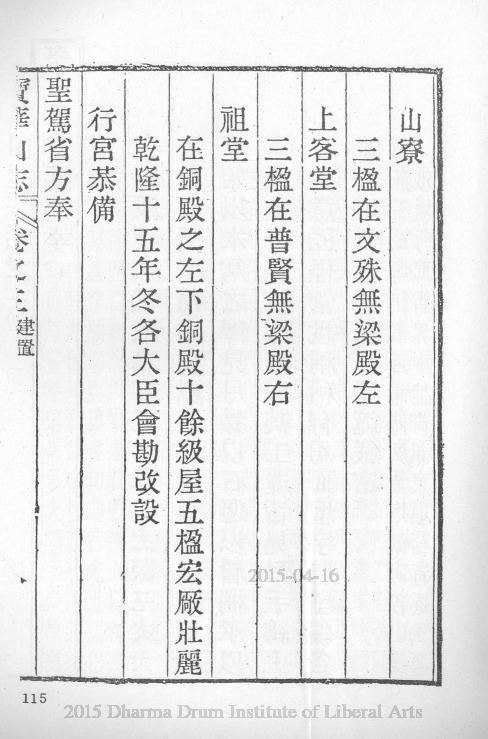 山寮
三楹在文殊無梁殿左
上客堂
三楹在普賢無梁殿右
祖堂
在銅殿之左下銅殿十餘級屋五楹宏厰壯麗
乾隆十五年冬各大臣會勘改設
行宮恭備
聖駕省方奉
寶華山志 卷之三 建置
115
2015-04-16
2015 Dharma Drum Institute of Liberal Arts